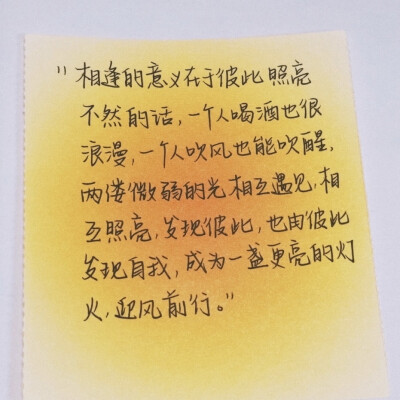 "相逢的意义在于彼此照亮
不然的话，一个人喝酒也很
浪漫，一个人吹风也能吹醒，
两偻微弱的光相互遇见，相
互照亮，发现彼此，也由彼此
发现自我，成为一盏更亮的灯
火，迎风前行。"